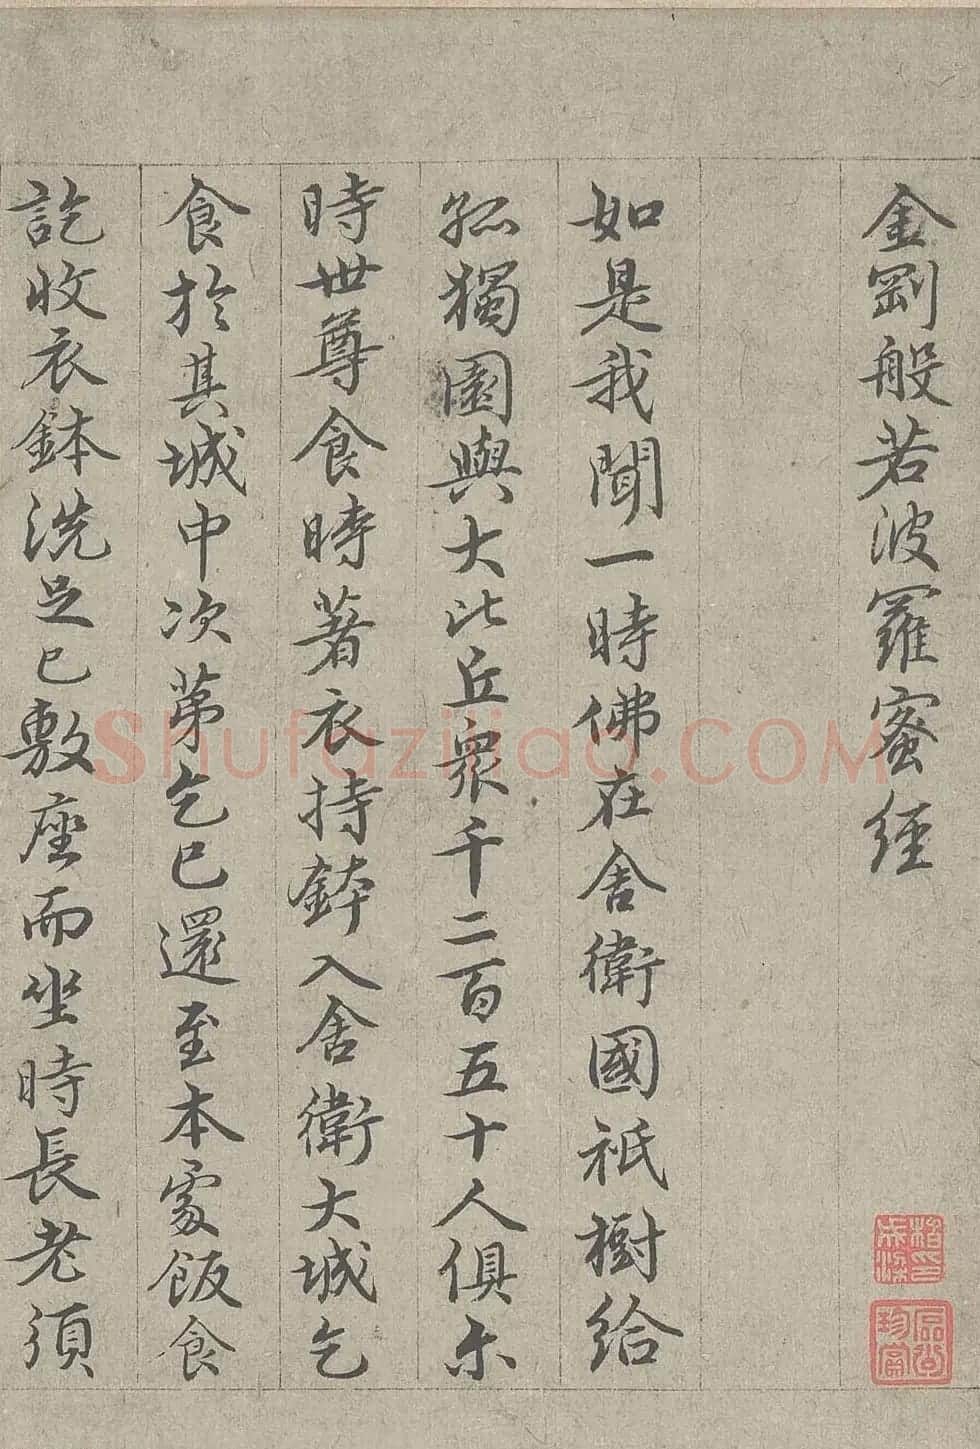 金剛般若波羅蜜經
如是我聞一時佛在舍衛國祇樹給
孤獨園與大比丘眾千二百五十人俱尒
時世尊食時著衣持鉢入舍衛大城乞
食於其城中次第乞已還至本處飯食
訖收衣鉢洗足已敷座而坐時長老須
Shufaziliao.COM